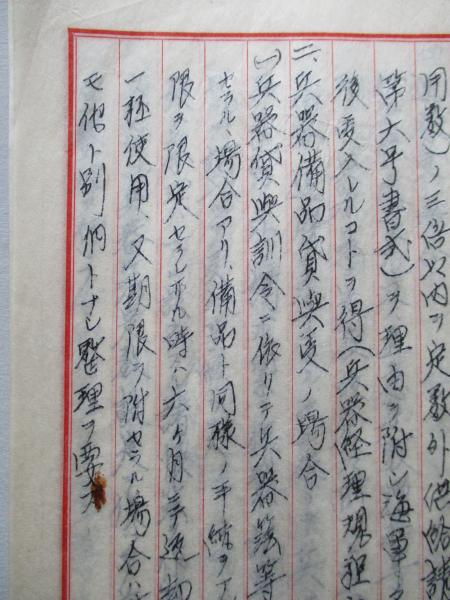 用数)ノ三倍以内ヲ定数外供給請
第六号書式)ヲ理由ヲ附シ海軍
後受入レルコトヲ得(兵器経理規程
二、兵器備品貸與受ノ場合
(一)兵器貸與訓令ニ依リテ兵器等
セラルヽ場合アリ、備品ト同様ノ手続ヲ
限ヲ限定セラレザル時ハ六ヶ月
一種使用、又期限ヲ附セラルヽ場合ハ
モ他ト別個トナシ整理ヲ要ス